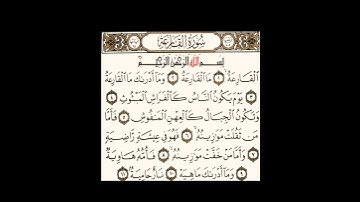 سُورَةُ القَارِعَةِ
بِسْمِ اللَّهِ الرَّحْمَٰنِ الرَّحِيمِ
الْقَارِعَةُ ١ مَا الْقَارِعَةُ ٢ وَمَا أَدْرَىٰكَ مَا الْقَارِعَةُ
٣ يَوْمَ يَكُونُ النَّاسُ كَالْفَرَاشِ الْمَبْثُوثِ ٤
وَتَكُونُ الْجِبَالُ كَالْعِهْنِ الْمَنفُوشِ ٥ فَأَمَّا
مَن ثَقُلَتْ مَوَٰزِينُهُ ٦ فَهُوَ فِي عِيشَةٍ رَّاضِيَةٍ
٧ وَأَمَّا مَنْ خَفَّتْ مَوَٰزِينُهُ ٨ فَأُمُّهُ هَاوِيَةٌ
٩ وَمَا أَدْرَىٰكَ مَا هِيَهْ ١٠ نَارٌ حَامِيَةٌ ١١